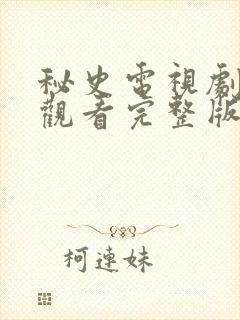 秘史電視劇
觀看完整版
柯連妹